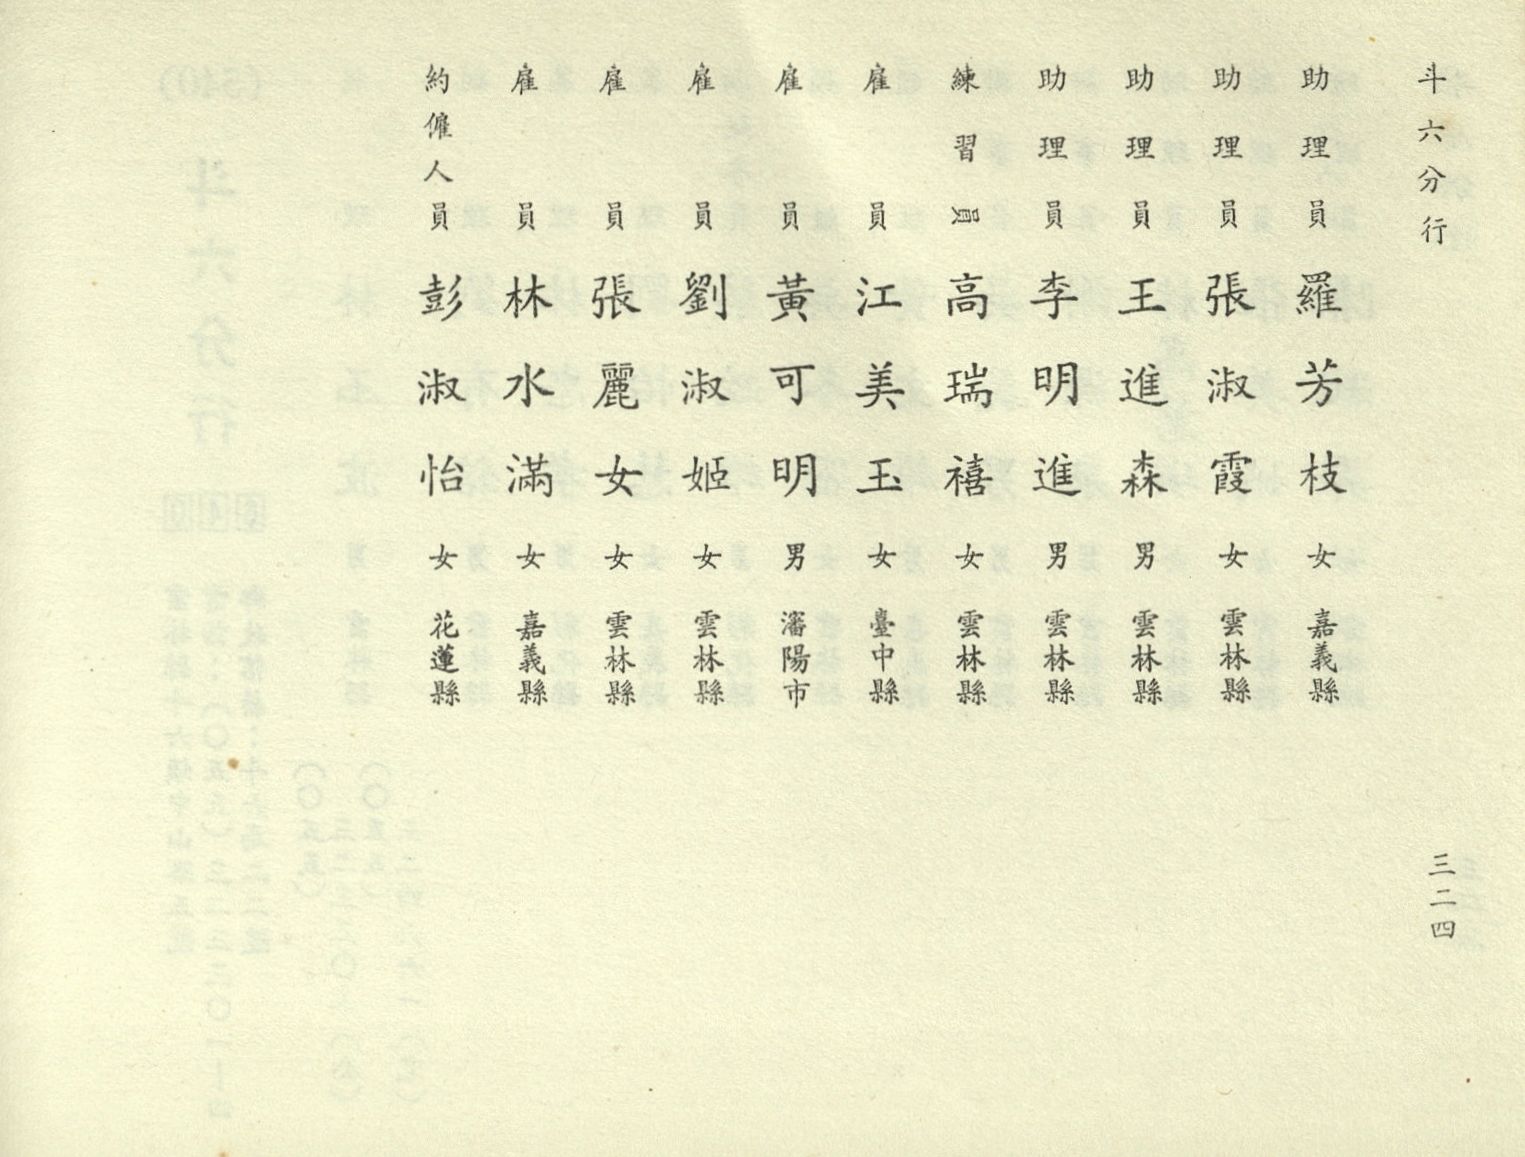 斗六分行
三二四
助理員 羅芳枝 女 嘉義縣
助理員 張淑霞 女 雲林縣
助理員 王進森 男 雲林縣
助理員 李明進 男 雲林縣
練習員 高瑞禧 女 雲林縣
雇員 江美玉 女 臺中縣
雇員 黃可明 男 瀋陽市
雇員 劉淑姬 女 雲林縣
雇員 張麗女 女 雲林縣
雇員 林水滿 女 嘉義縣
約僱人員 彭淑怡 女 花蓮縣